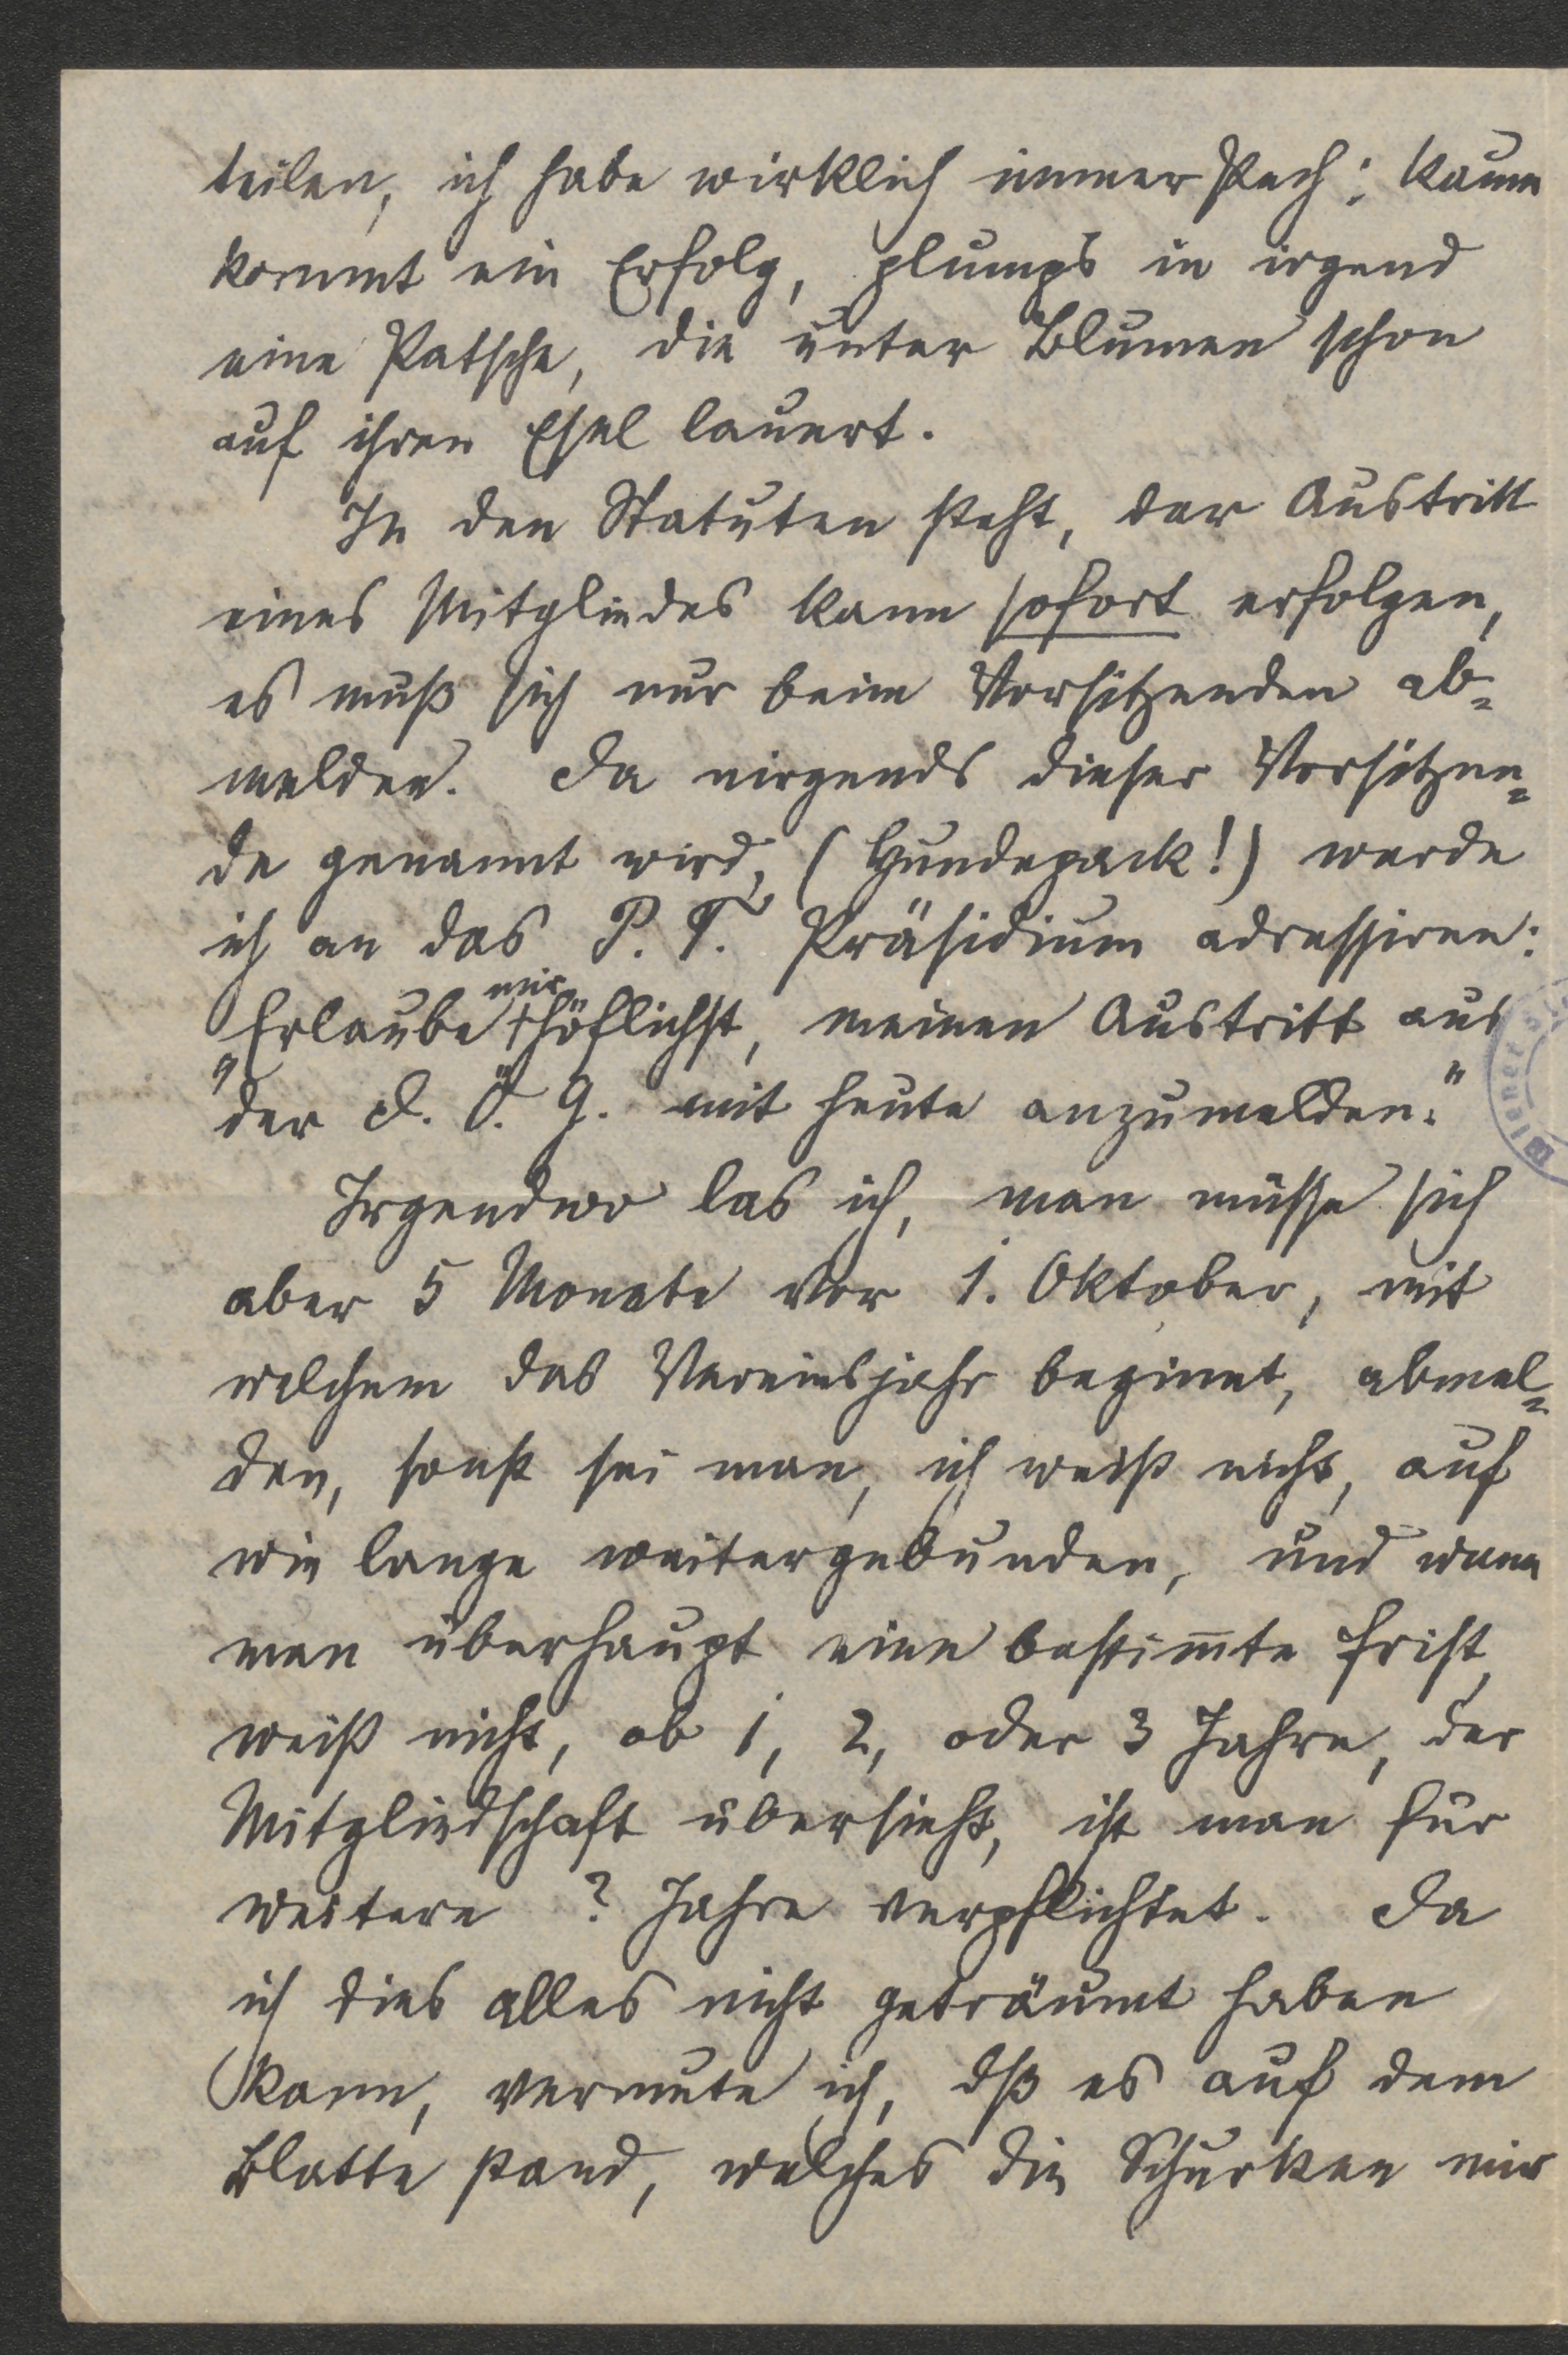 teilen, ich habe wirklich immer Pech: kaum
kommt ein Erfolg, plumps in irgend
eine Patsche, die unter Blumen schon
auf ihren Esel lauert.
In den Statuten steht, der Austritt
eines Mitgliedes kann sofort erfolgen,
es muß sich nur beim Vorsitzenden ab=
melden. Da nirgends dieser Vorsitzen=
de genannt wird, (Hundepack!) werde
ich an das P. T. Präsidium adressiren:
mir
"Erlaube höflichst, meinen Austritt aus
"der d. Ö. G. mit heute anzumelden."
Irgendwo las ich, man müsse sich
aber 5 Monate vor 1. Oktober, mit
welchem das Vereinsjahr beginnt, abmel=
den, sonst sei man, ich weiß nicht, auf
wie lange weitergebunden, und wenn
man überhaupt eine bestim̅te Frist,
weiß nicht, ob 1, 2, oder 3 Jahre, der
Mitgliedschaft übersieht, ist man für
weitere ? Jahre verpflichtet. Da
ich dies alles nicht geträumt haben
kann, vermute ich, dß es auf dem
Blatte stand, welches die Schurken mir
Wiener